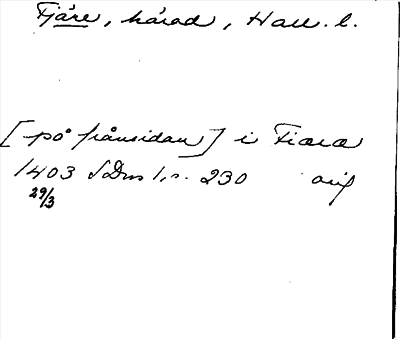 Fjäre, härad, Hall. l.
[på frånsidan] i Fiæræ
1403 SDns 1, s. 230 avs
29/3